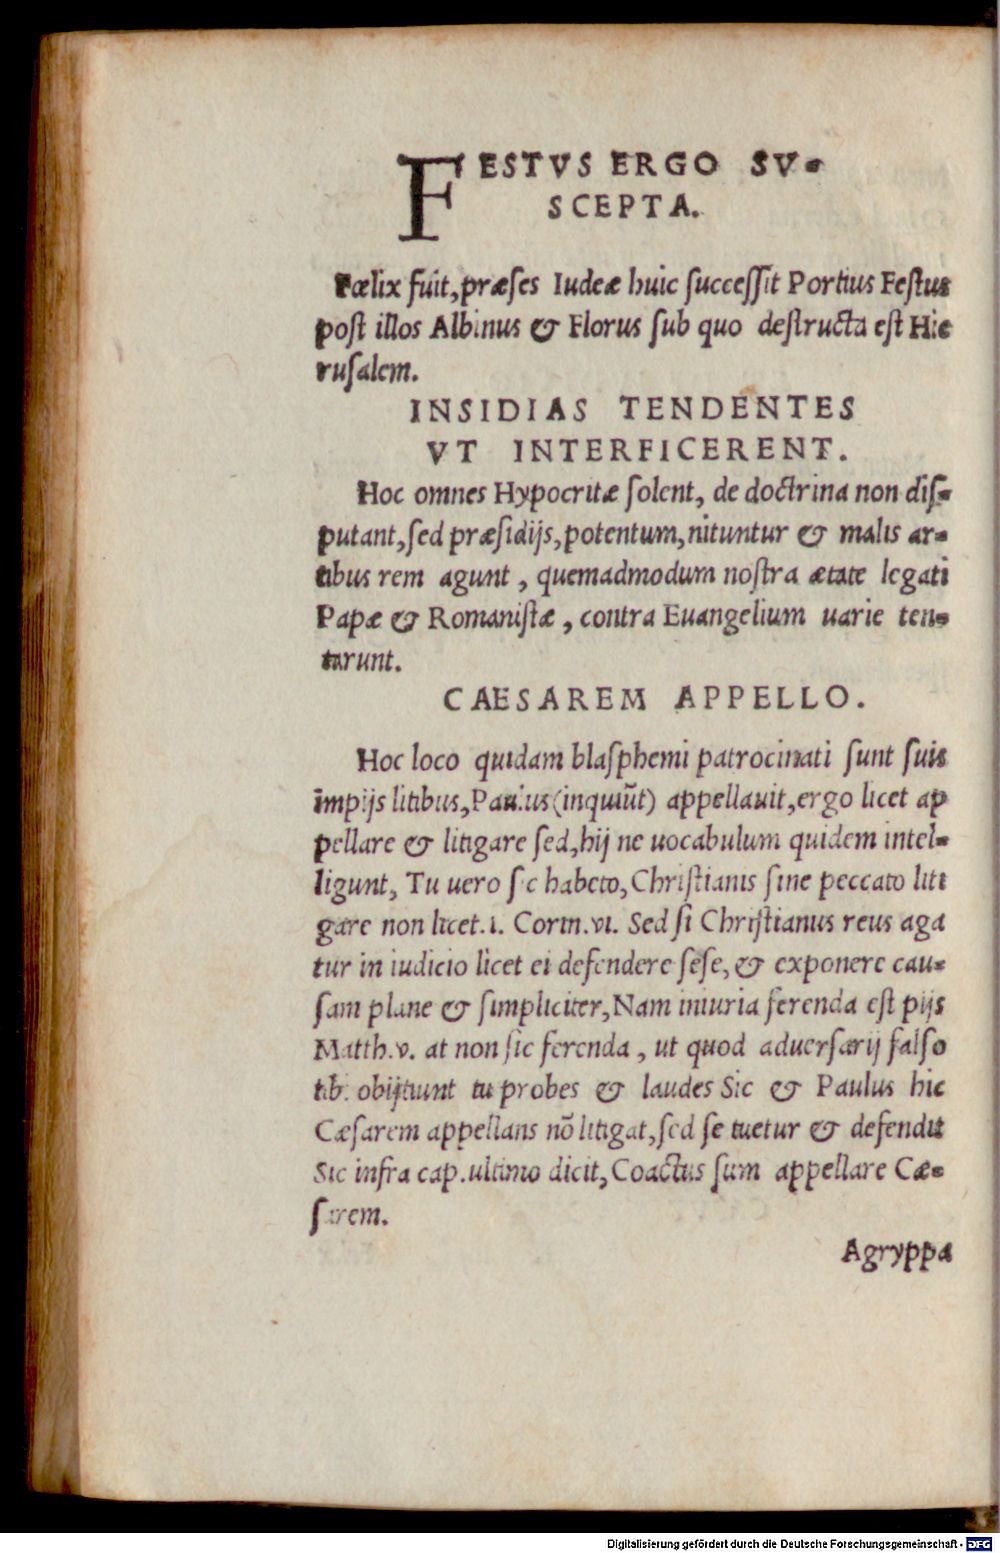 FESTVS ERGO SV-
SCEPTA.
Fœlix fuit, præses Iudeæ huic successit Portius Festus
post illos Albinus & Florus sub quo destructa est Hie
rusalem.
INSIDIAS TENDENTES
VT INTERFICERENT.
Hoc omnes Hypocritæ solent, de doctrina non dis-
putant, sed præsidijs, potentum, nituntur & malis ar-
tibus rem agunt, quemadmodum nostra ætate legati
Papæ & Romanistæ, contra Euangelium uarie ten-
tarunt.
CAESAREM APPELLO.
Hoc loco quidam blasphemi patrocinati sunt suis
impijs litibus, Paulus (inquiũt) appellauit, ergo licet ap
pellare & litigare sed, hij ne uocabulum quidem intel-
ligunt, Tu uero sic habeto, Christianis sine peccato liti
gare non licet. i. Corin. vi. Sed si Christianus reus aga
tur in iudicio licet ei defendere sese, & exponere cau-
sam plane & simpliciter, Nam iniuria ferenda est pijs
Matth. v. at non sic ferenda, ut quod aduersarij falso
tibi obijciunt tu probes & laudes Sic & Paulus hic
Cæsarem appellans nõ litigat, sed se tuetur & defendit
Sic infra cap. ultimo dicit, Coactus sum appellare Cæ-
sarem.
Agryppa
Digitalisierung gefördert durch die Deutsche Forschungsgemeinschaft - DFG